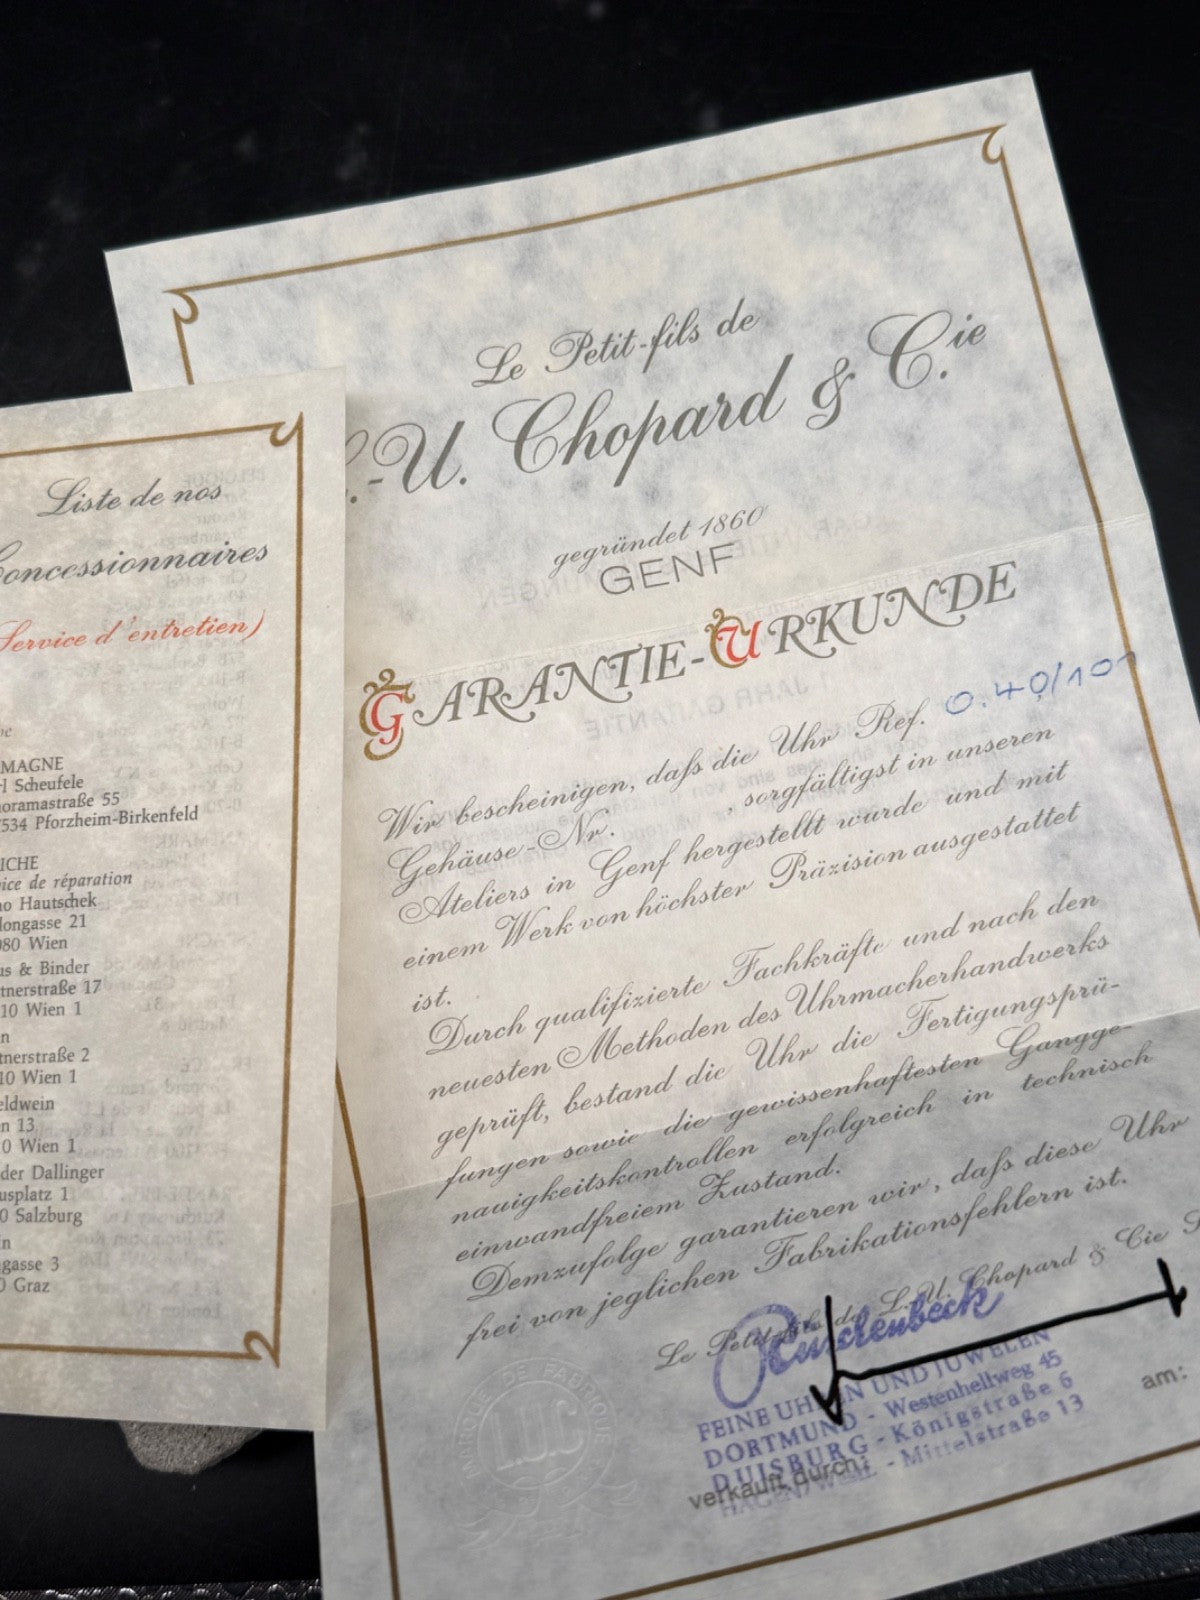 Liste de nos
Concessionnaires
Service d'entretien)
MAGNE
Scheufele
oramastraße 55
7534 Pforzheim-Birkenfeld
ICHE
ice de réparation
Hautschek
longasse 21
080 Wien
us & Binder
tnerstraße 17
10 Wien 1
tnerstraße 2
10 Wien 1
eldwein
n 13
0 Wien 1
der Dallinger
usplatz 1
0 Salzburg
gasse 3
0 Graz
Le Petit-fils de
.-U. Chopard & Cie
gegründet 1860
GENF
GARANTIE-URKUNDE
Wir bescheinigen, daß die Uhr Ref. 0.40/101
Gehäuse-Nr. , sorgfältigst in unseren
Ateliers in Genf hergestellt wurde und mit
einem Werk von höchster Präzision ausgestattet
ist.
Durch qualifizierte Fachkräfte und nach den
neuesten Methoden des Uhrmacherhandwerks
geprüft, bestand die Uhr die Fertigungsprü-
fungen sowie die gewissenhaftesten Gangge-
nauigkeitskontrollen erfolgreich in technisch
einwandfreiem Zustand.
Demzufolge garantieren wir, daß diese Uhr
frei von jeglichen Fabrikationsfehlern ist.
Le Petit-fils de L. U. Chopard & Cie
Rüschenbeck
FEINE UHREN UND JUWELEN
DORTMUND - Westenhellweg 45
DUISBURG - Königstraße 6
HAGEN/WESTF. - Mittelstraße 13
verkauft durch:
am:
MARQUE DE FABRIQUE
L.U.C